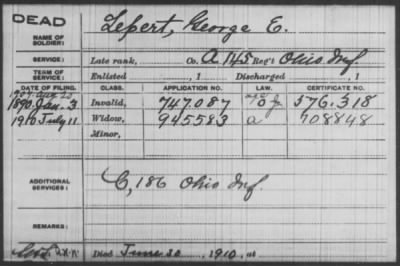 DEAD
NAME OF SOLDIER: Lepert, George E.
SERVICE: Late rank, Co. A, 145 Reg't Ohio Inf.
TERM OF SERVICE: Enlisted , 1 Discharged , 1
DATE OF FILING. CLASS. APPLICATION NO. LAW. CERTIFICATE NO.
1890 Jan. 3 Invalid, 747.087 576.318
1910 July 11 Widow, 945583 a 708848
Minor,
ADDITIONAL SERVICES: C, 186 Ohio Inf.
REMARKS:
Died June 20, 1910, at